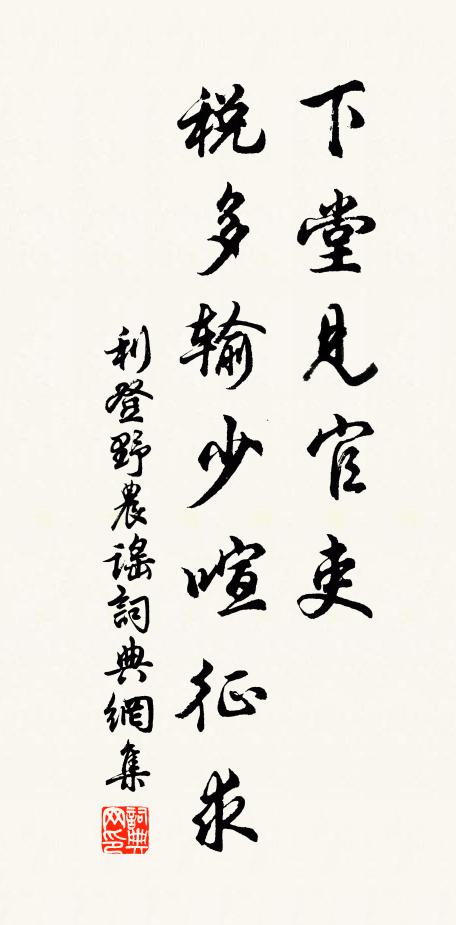 下堂見官吏
税多输少喧征求
利登野農謠詞典網集
詞典網印